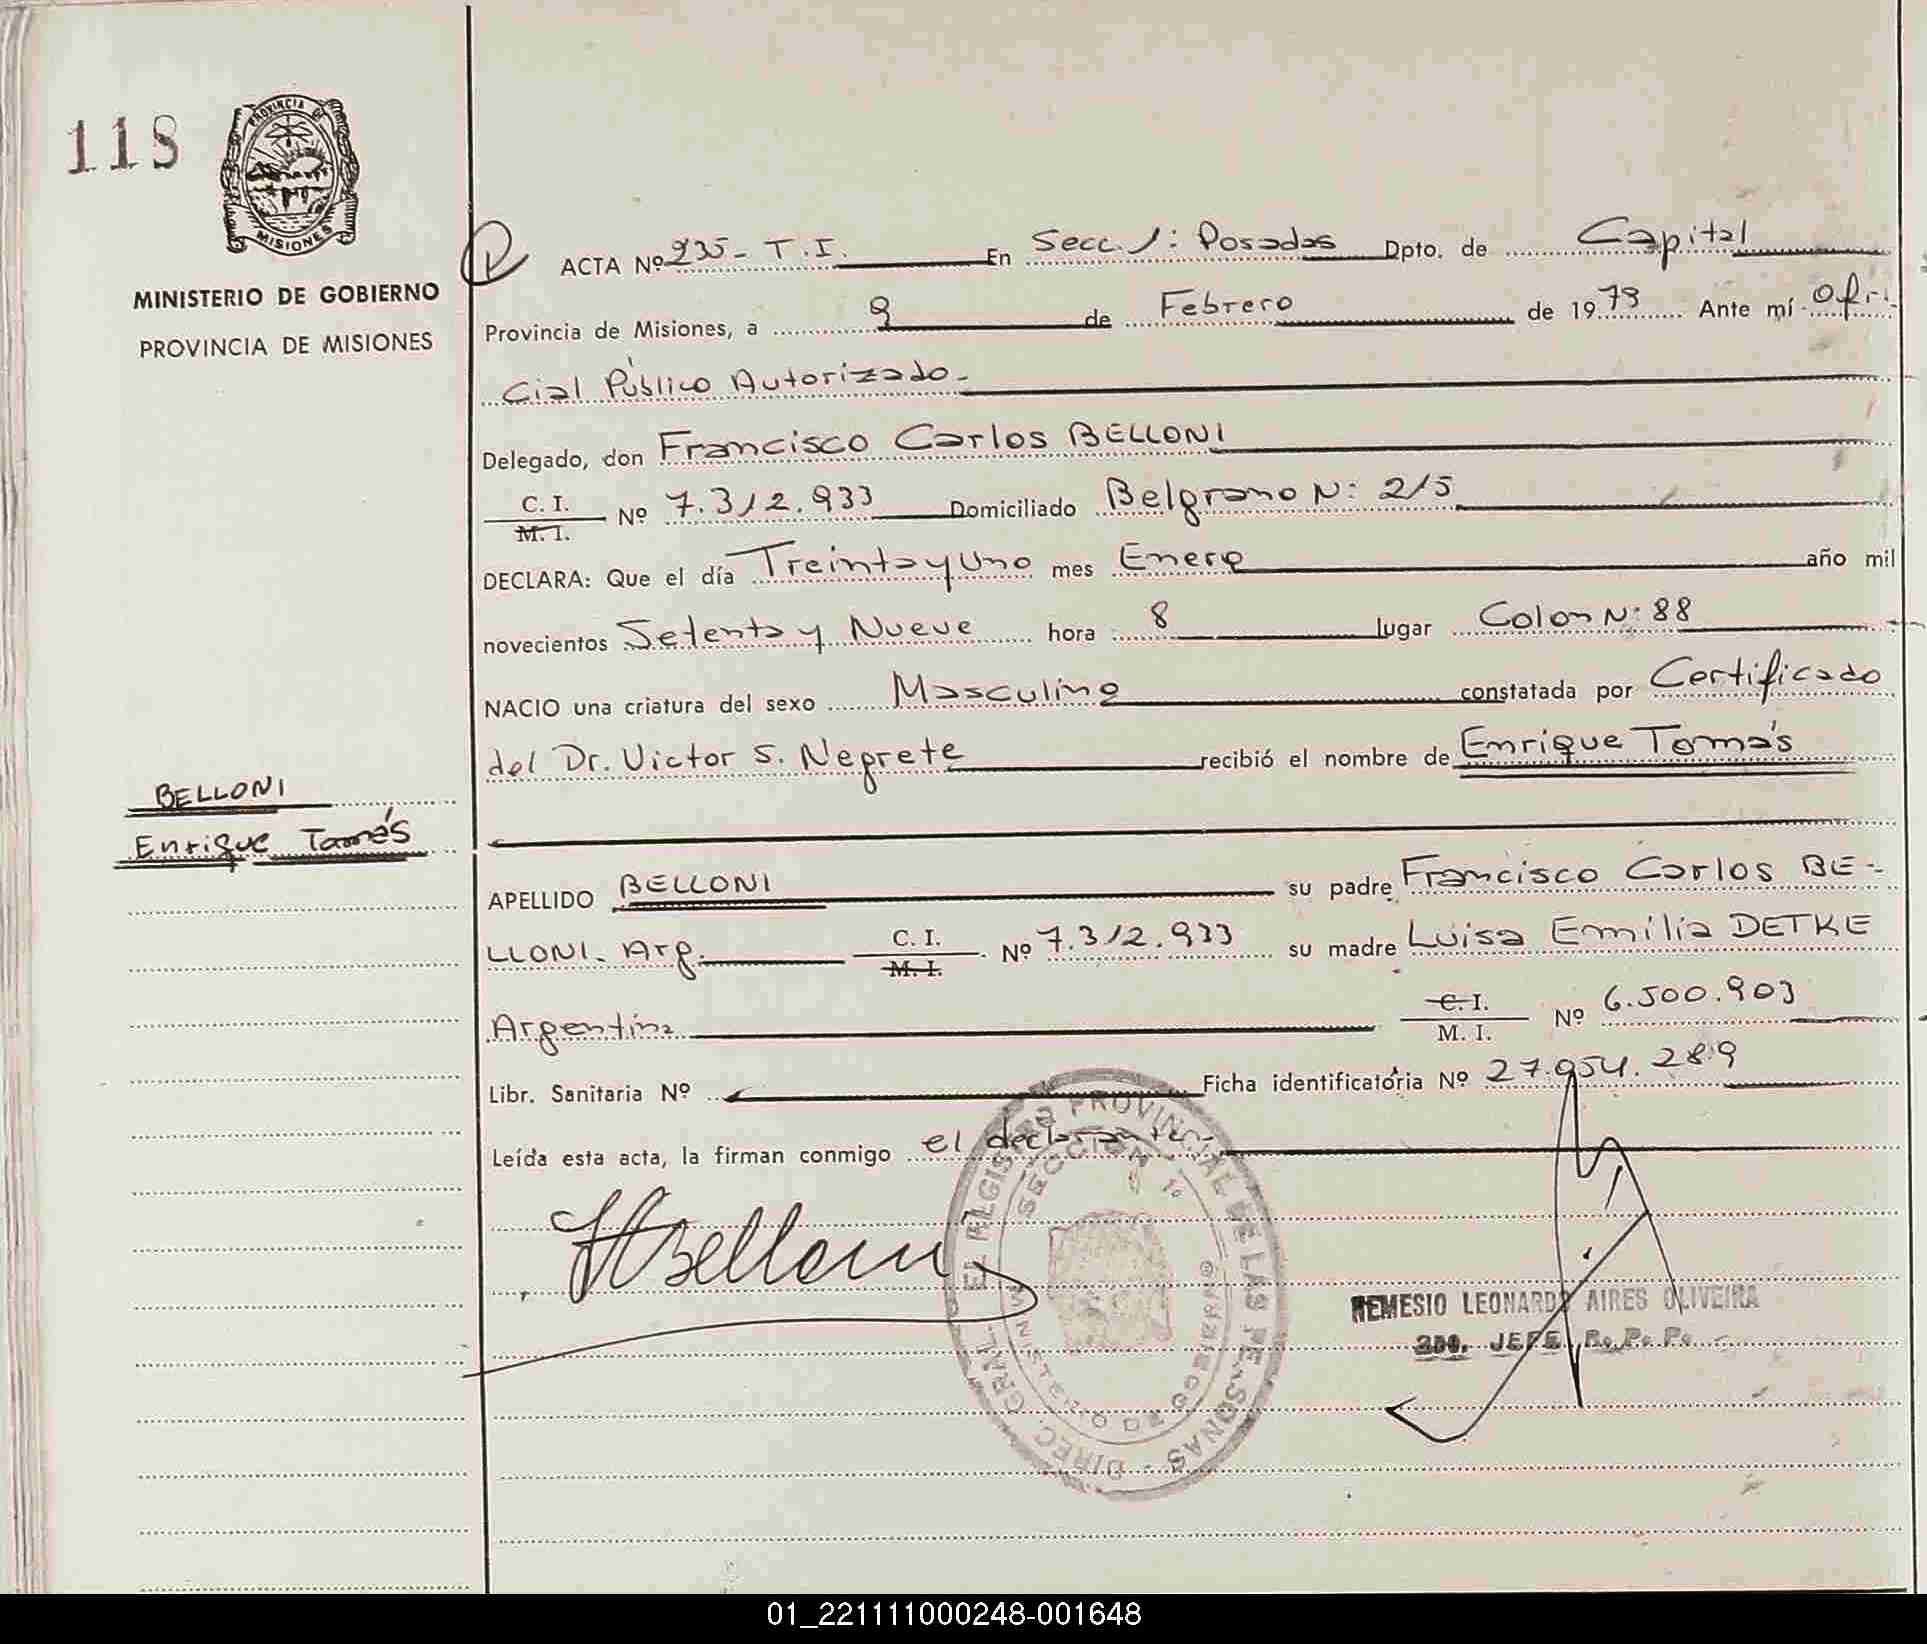 118
PROVINCIA DE
MISIONES
MINISTERIO DE GOBIERNO
PROVINCIA DE MISIONES
ACTA Nº 235- T.I. En Secc 1: Posadas Dpto. de Capital
Provincia de Misiones, a 9 de Febrero de 1979 Ante mí Ofi-
cial Público Autorizado-
Delegado, don Francisco Carlos BELLONI
C. I.
M. I.
Nº 7.312.933 Domiciliado Belgrano N: 215
DECLARA: Que el día Treinta y Uno mes Enero año mil
novecientos Setenta y Nueve hora 8 lugar Colon N: 88
NACIO una criatura del sexo Masculino constatada por Certificado
del Dr. Victor S. Negrete recibió el nombre de Enrique Tomás
BELLONI
Enrique Tomás
APELLIDO BELLONI su padre Francisco Carlos BE-
LLONI- Arg. C. I. M. I. Nº 7.312.933 su madre Luisa Emilia DETKE
Argentina C. I. M. I. Nº 6.500.903
Libr. Sanitaria Nº Ficha identificatoria Nº 27.954.289
Leída esta acta, la firman conmigo el declarante.-
Belloni
DIREC. GRAL. DEL REGISTRO PROVINCIAL DE LAS PERSONAS
SECCION 1º
MINISTERIO DE GOBIERNO
NEMESIO LEONARDO AIRES OLIVEIRA
2do. JEFE R.P.P.
01_221111000248-001648